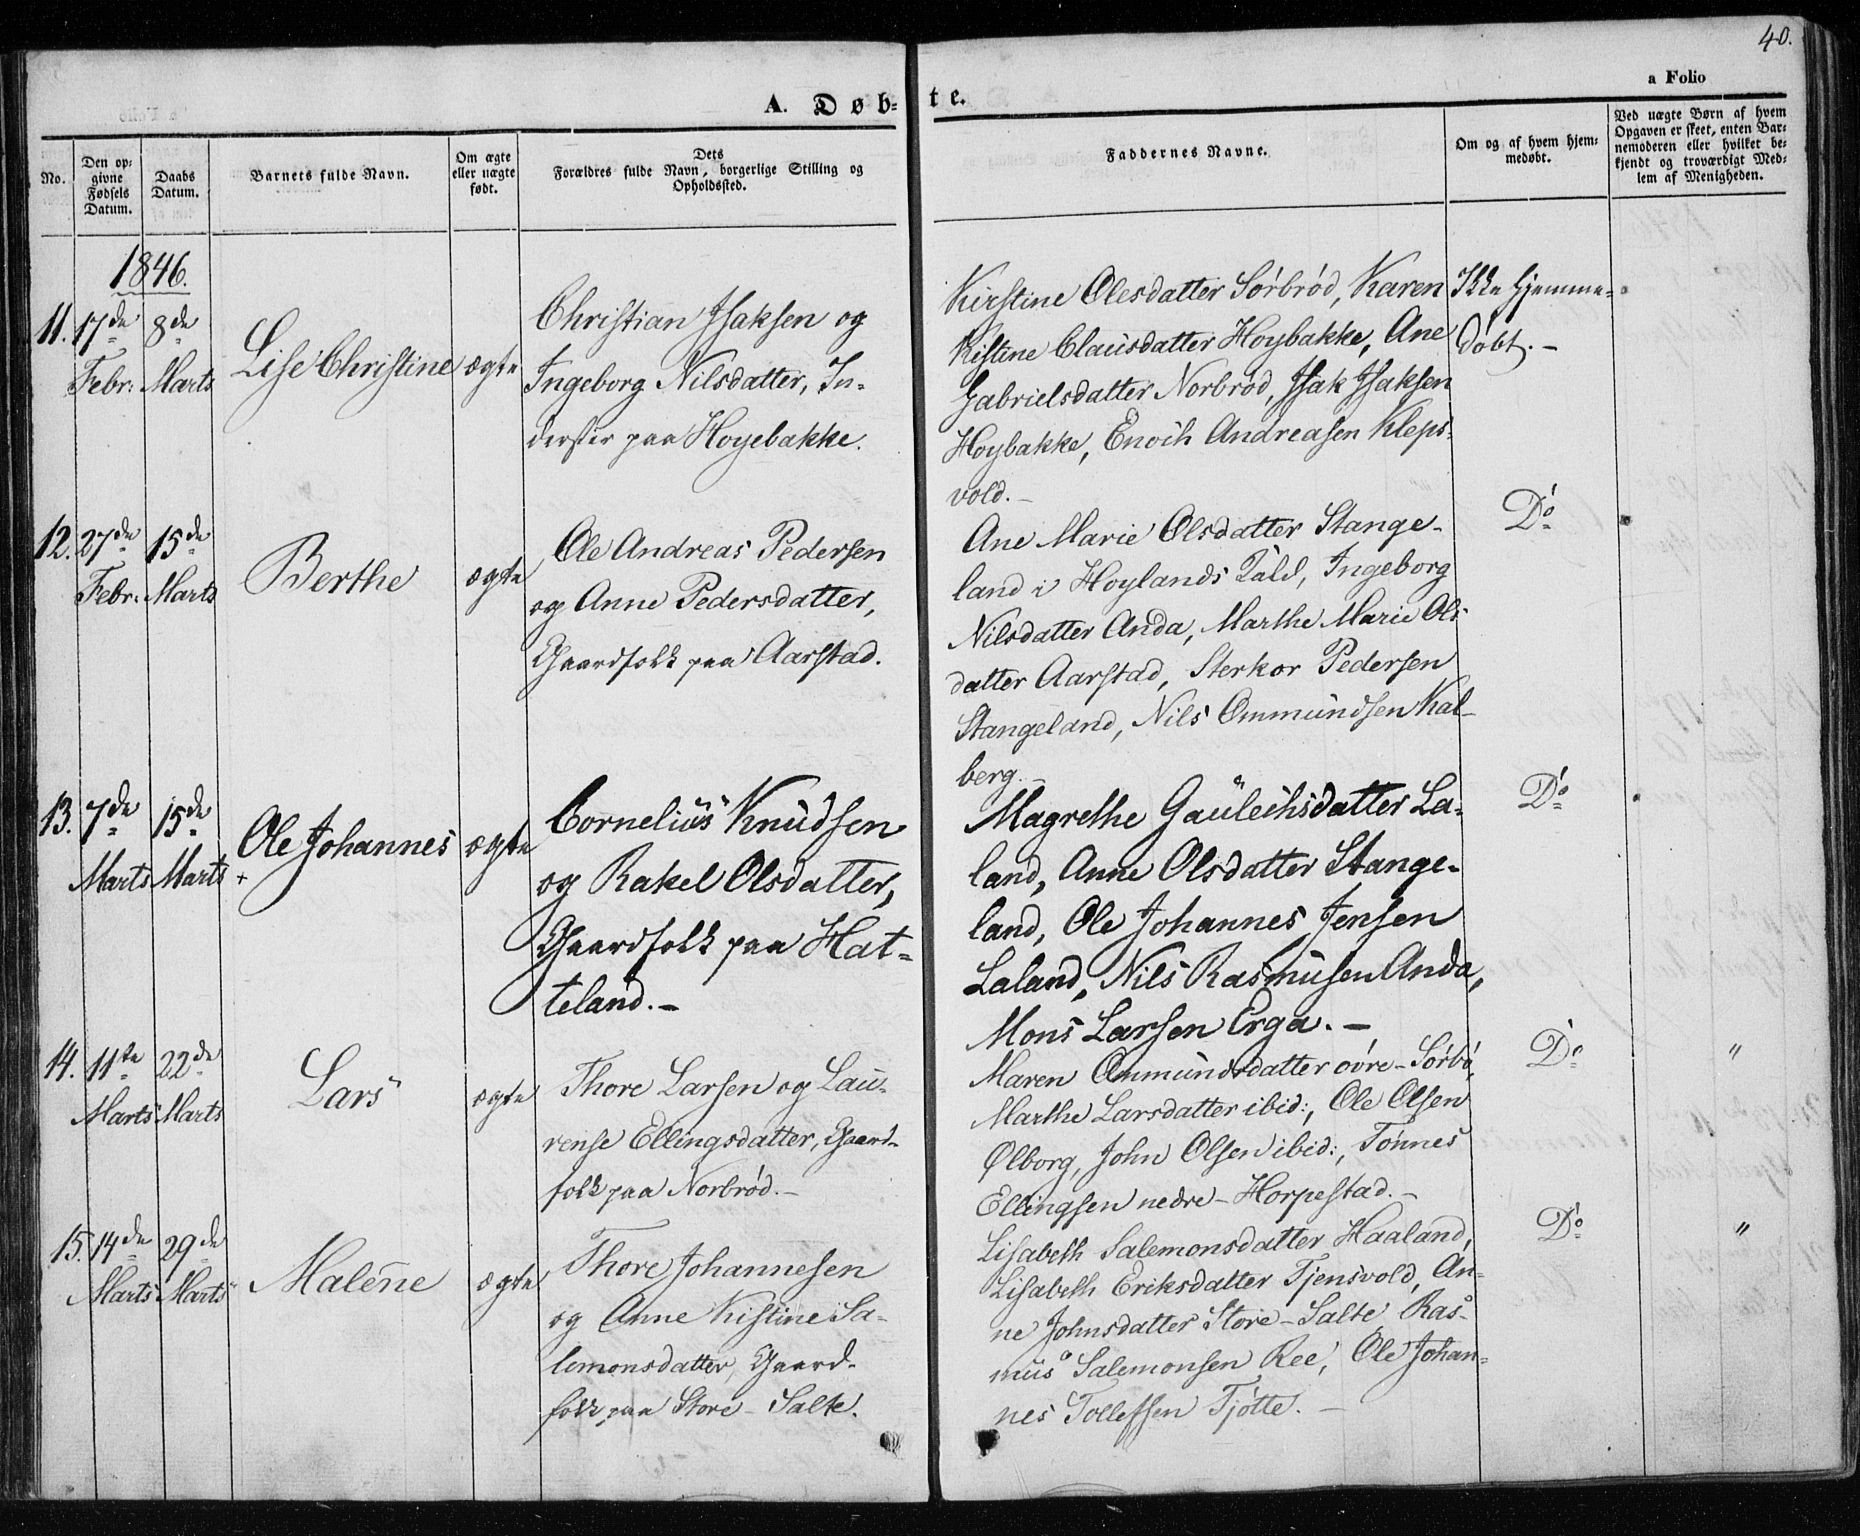 40.
a Folio
A. Døb-
te.
No.
Den op-
givne
Fødsels
Datum.
Daabs
Datum.
Barnets fulde Navn.
Om ægte
eller uægte
født.
Dets
Forældres fulde Navn, borgerlige Stilling og
Opholdssted.
Faddernes Navne.
Om og af hvem hjem-
medøbt.
Ved uægte Børn af hvem
Opgaven er skeet, enten Bar-
nemoderen eller hvilket be-
kjendt og troværdigt Med-
lem af Menigheden.
1846.
11. 17de
Febr:
8de
Marts
Lise Christine
ægte
Christian Isaksen og
Ingeborg Nilsdatter, In-
derster paa Høyebakke.
Kirstine Olesdatter Sørbrød, Karen
Kistine Clausdatter Hoybakke, Ane
Gabrielsdatter Norbrød, Isak Isaksen
Hoybakke, Enoch Andreasen Kleps-
vold. -
Ikke hjemme-
døbt. -
12. 27de
Febr:
15de
Marts
Berthe
ægte
Ole Andreas Pedersen
og Anne Pedersdatter,
Gaardfolk paa Aarstad.
Ane Marie Olsdatter Stange-
land i Hoylands Præld, Ingeborg
Nilsdatter Anda, Marthe Marie Ols
datter Aarstad, Sterkor Pedersen
Stangeland, Nils Ommundsen Kal-
berg. -
Do
13. 7de
Marts
15de
Marts
+
Ole Johannes
ægte
Cornelius Knudsen
og Rakel Olsdatter,
Gaardfolk paa Hat-
teland. -
Magrethe Gauleihsdatter La-
land, Anne Olsdatter Stange-
land, Ole Johannes Jensen
Laland, Nils Rasmusen Anda,
Mons Larsen Erga. -
Do
14. 11te
Marts
22de
Marts
Lars
ægte
Thore Larsen og Lau-
rense Ellingsdatter, Gaard-
folk paa Norbrød. -
Maren Ommundsdatter øvre-Sørbø,
Marthe Larsdatter ibid:, Ole Olsen
Ølborg, John Olsen ibid:, Tønnes
Ellingsen nedre-Horpestad. -
Do
"
15. 14de
Marts
29de
Marts
Malene
ægte
Thore Johannesen
og Anne Kistine Sa-
lemonsdatter, Gaard-
folk paa Store-Salte.
Lisabeth Salemonsdatter Haaland,
Lisabeth Eriksdatter Tjensvold, An-
ne Johnsdatter Store-Salte, Ras-
mus Salemonsen Ree, Ole Johan-
nes Tollefsen Tjøtte. -
Do
"